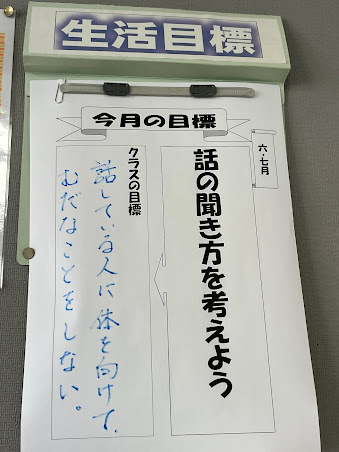 生活目標
今月の目標
六・七月
話の聞き方を考えよう
クラスの目標
話している人に体を向けて、
むだなことをしない。